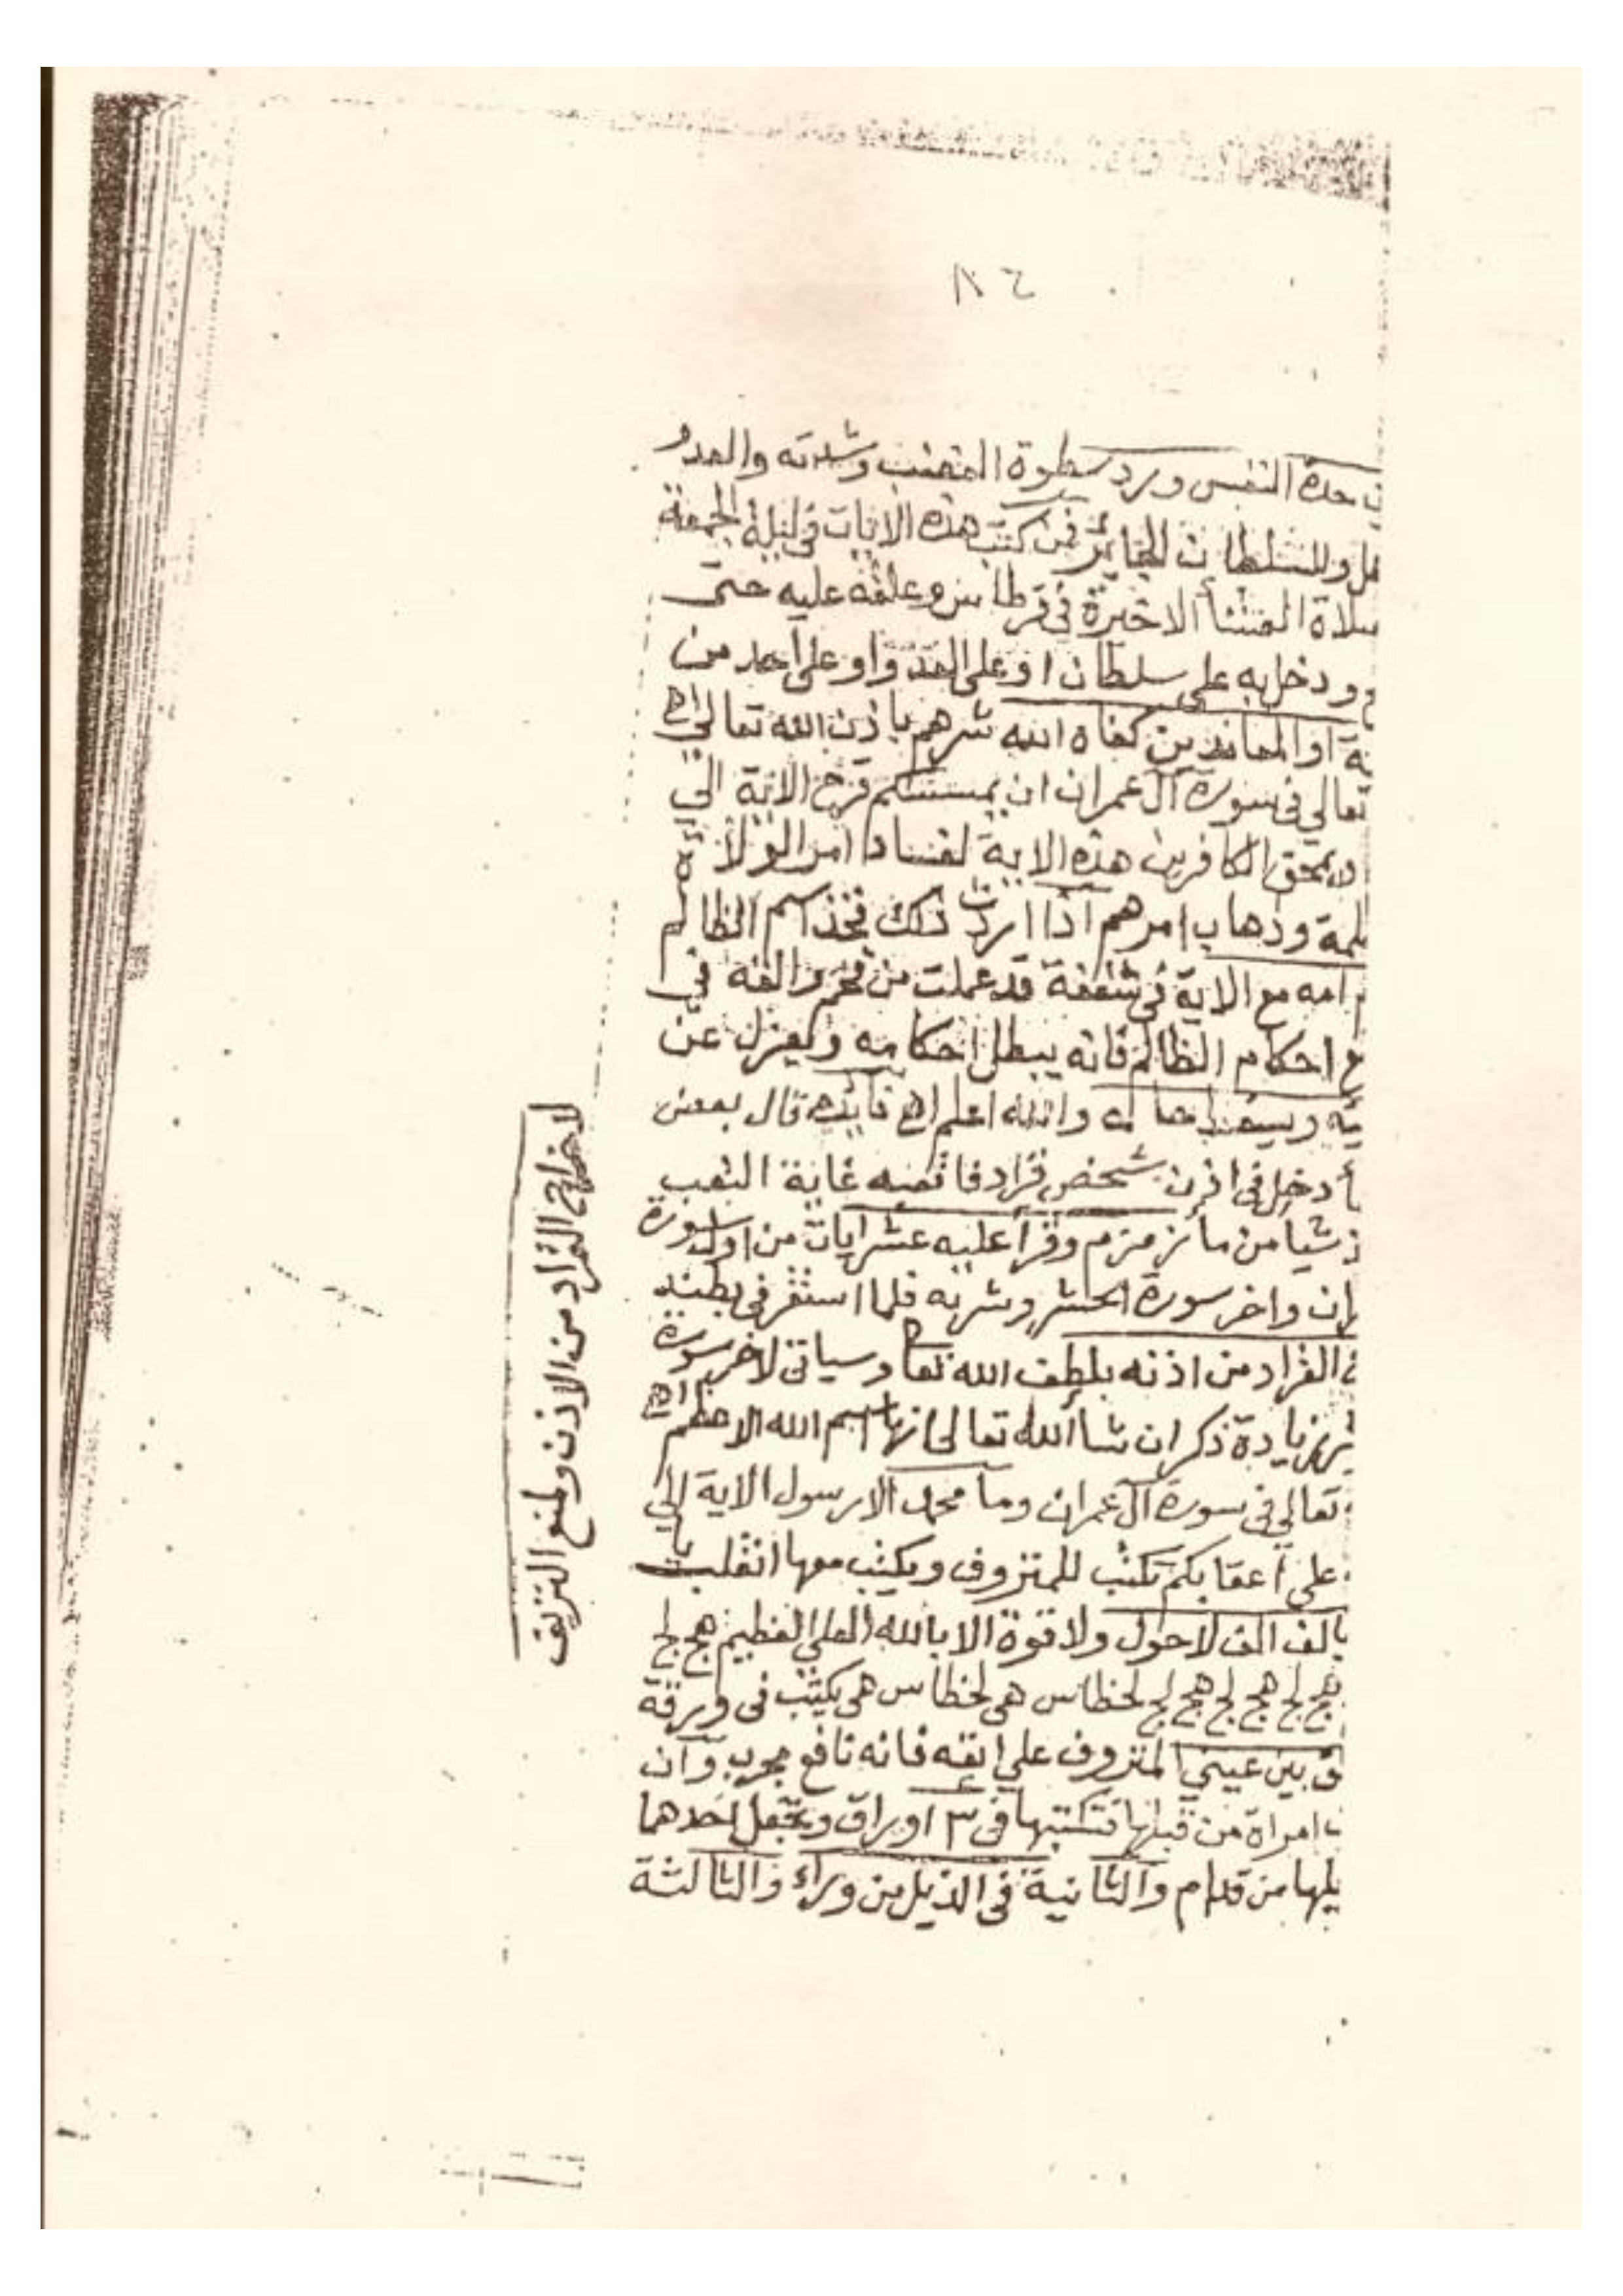 حدة النفس ويرد سطوة الغضب وشدته والعدو
وللسلطان الجائر فمن كتب هذه الايات في ليلة الجمعة
صلاة العشأ الاخيرة في قرطاس وعلقه عليه حتى
ودخل به على سلطان او على العدو او على احد من
او المعاندين كفاه الله شرهم باذن الله تعالى اهـ
تعالي في سورة آل عمران ان يمسسكم قرح الاية الي
ويمحق الكافرين هذه الاية لفساد امر الولاة
وذهاب امرهم اذا اردت ذلك فخذ اسم الظالم
امه مع الاية في شقفة قد عملت من والقه في
احكام الظالم فانه يبطل احكامه ويعزل عن
والله اعلم اهـ فائده قال بعض
دخل في اذن شخص قراد فاتعبه غاية التعب
شيا من مأ زمزم وقرأ عليه عشر ايات من اول سورة
واخر سورة الحشر وشربه فلما استقر في بطنه
القراد من اذنه بلطف الله تعا وسياتي لاخر سورة
زيادة ذكر ان شا الله تعالى انها اسم الله الاعظم اهـ
تعالي في سورة آل عمران وما محمد الا رسول الاية الي
على اعقابكم تكتب للمنزوف ويكتب معها انقلب يا
بالف الف لا حول ولا قوة الا بالله العلي العظيم هج لج
هج لج هج لج هج لج لحظاس هي لحظاس هي يكتب في ورقة
بين عيني المنزوف علي انفه فانه نافع مجرب وان
امراة من قبلها تكتبها في ٣ اوراق وتجعل احداها
من قدام والثانية في الذيل من وراء والثالثة
لاخراج القراد من الاذن ولمنع النزيف